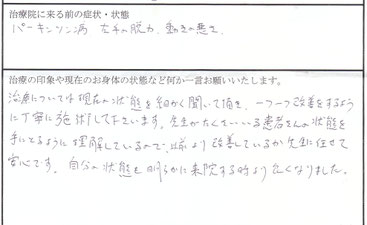 治療院に来る前の症状・状態
パーキンソン病 左手の脱力、動きの悪さ
治療の印象や現在のお身体の状態など何か一言お願いいたします。
治療については現在の状態を細かく聞いて頂き、一つ一つ改善をするよう
に丁寧に施術して下さいます。先生がたくさんいる患者さんの状態を
手にとるように理解しているので、より改善しているか先生に任せて
安心です。自分の状態も明らかに来院する時より良くなりました。